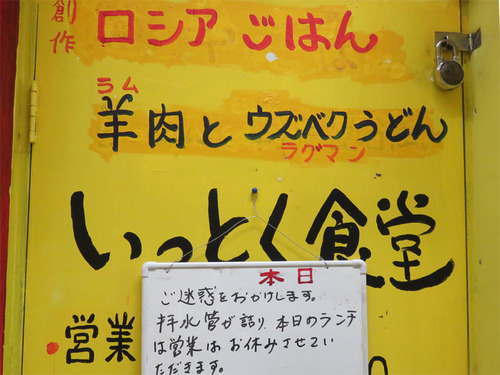 創作 ロシアごはん
ラム
羊肉とウズベクうどん
ラグマン
いっとく食堂
営業
本日
ご迷惑をおかけします。
排水管が詰り、本日のランチ
は営業はお休みさせてい
ただきます。